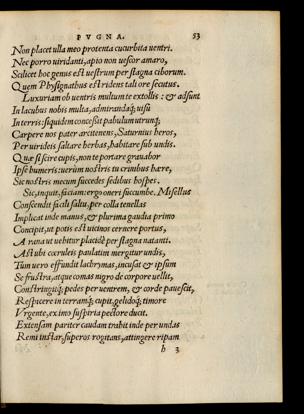 PVGNA. 53
Non placet ulla meo protenta cucurbita uentri.
Nec porro uiridanti, apio non uescor amaro,
Scilicet hoc genus est uestrum per stagna ciborum.
Quem Physignathus est ridens tali ore secutus.
Luxuriam ob uentris multum te extollis : & adsunt
In lacubus nobis multa, admirandaq; uisu
In terris: siquidem concessit pabulum utrunq;
Carpere nos pater arcitenens, Saturnius heros,
Per uirideis saltare herbas, habitare sub undis.
Quæ si scire cupis, non te portare grauabor
Ipse humeris: uerùm nostris tu crinibus hære,
Sic nostris mecum succedes sedibus hospes.
Sic, inquit. faciam: ergo oneri succumbe. Misellus
Conscendit facili saltu, per colla tenellas
Implicat inde manus, & plurima gaudia primo
Concipit, ut potis est uicinos cernere portus,
A rana ut uehitur placidè per stagna natanti.
Ast ubi cœruleis paulatim mergitur undis,
Tum uero effundit lachrymas, incusat & ipsum
Se frustra, atque comas nigro de corpore uellit,
Constringitq; pedes per uentrem, & corde pauescit,
Respicere in terramq; cupit. gelidoq; timore
Vrgente, ex imo suspiria pectore ducit.
Extensam pariter caudam trahit inde per undas
Remi instar, superos rogitans, attingere ripam
h 3